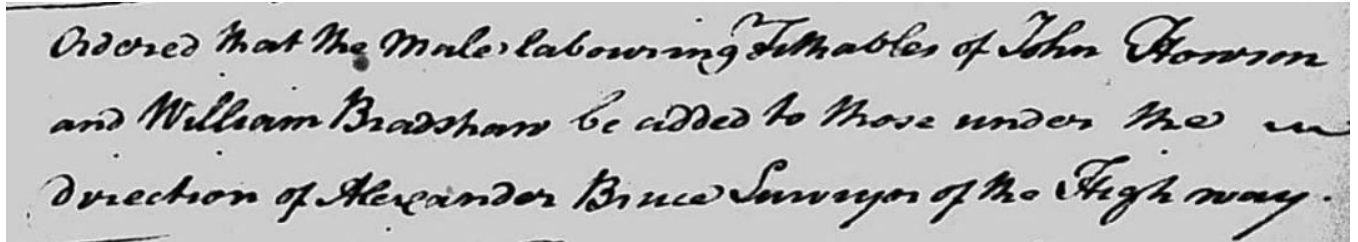 Ordered that the Male labouring Tithables of John Howson
and William Bradshaw be added to those under the
direction of Alexander Bruce Surveyor of the High way.